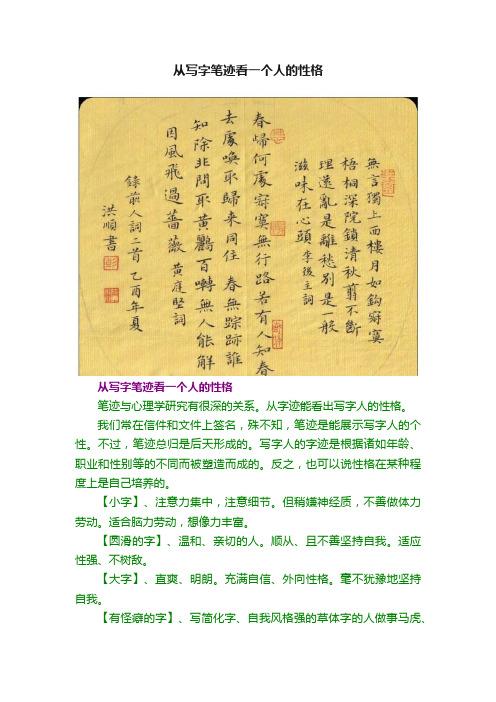 从写字笔迹看一个人的性格
無言獨上西樓月如鈎寂寞
梧桐深院鎖清秋翦不斷
理還亂是離愁別是一般
滋味在心頭 李後主詞
春歸何處寂寞無行路若有人知春
去處喚取歸来同住 春無踪跡誰
知除非問取黃鸝百囀無人能解
因風飛過薔薇 黃庭堅詞
錄前人詞二首 乙酉年夏
洪順書
从写字笔迹看一个人的性格
笔迹与心理学研究有很深的关系。从字迹能看出写字人的性格。
我们常在信件和文件上签名，殊不知，笔迹是能展示写字人的个
性。不过，笔迹总归是后天形成的。写字人的字迹是根据诸如年龄、
职业和性别等的不同而被塑造而成的。反之，也可以说性格在某种程
度上是自己培养的。
【小字】、注意力集中，注意细节。但稍嫌神经质，不善做体力
劳动。适合脑力劳动，想像力丰富。
【圆滑的字】、温和、亲切的人。顺从、且不善坚持自我。适应
性强、不树敌。
【大字】、直爽、明朗。充满自信、外向性格。毫不犹豫地坚持
自我。
【有怪癖的字】、写简化字、自我风格强的草体字的人做事马虎、